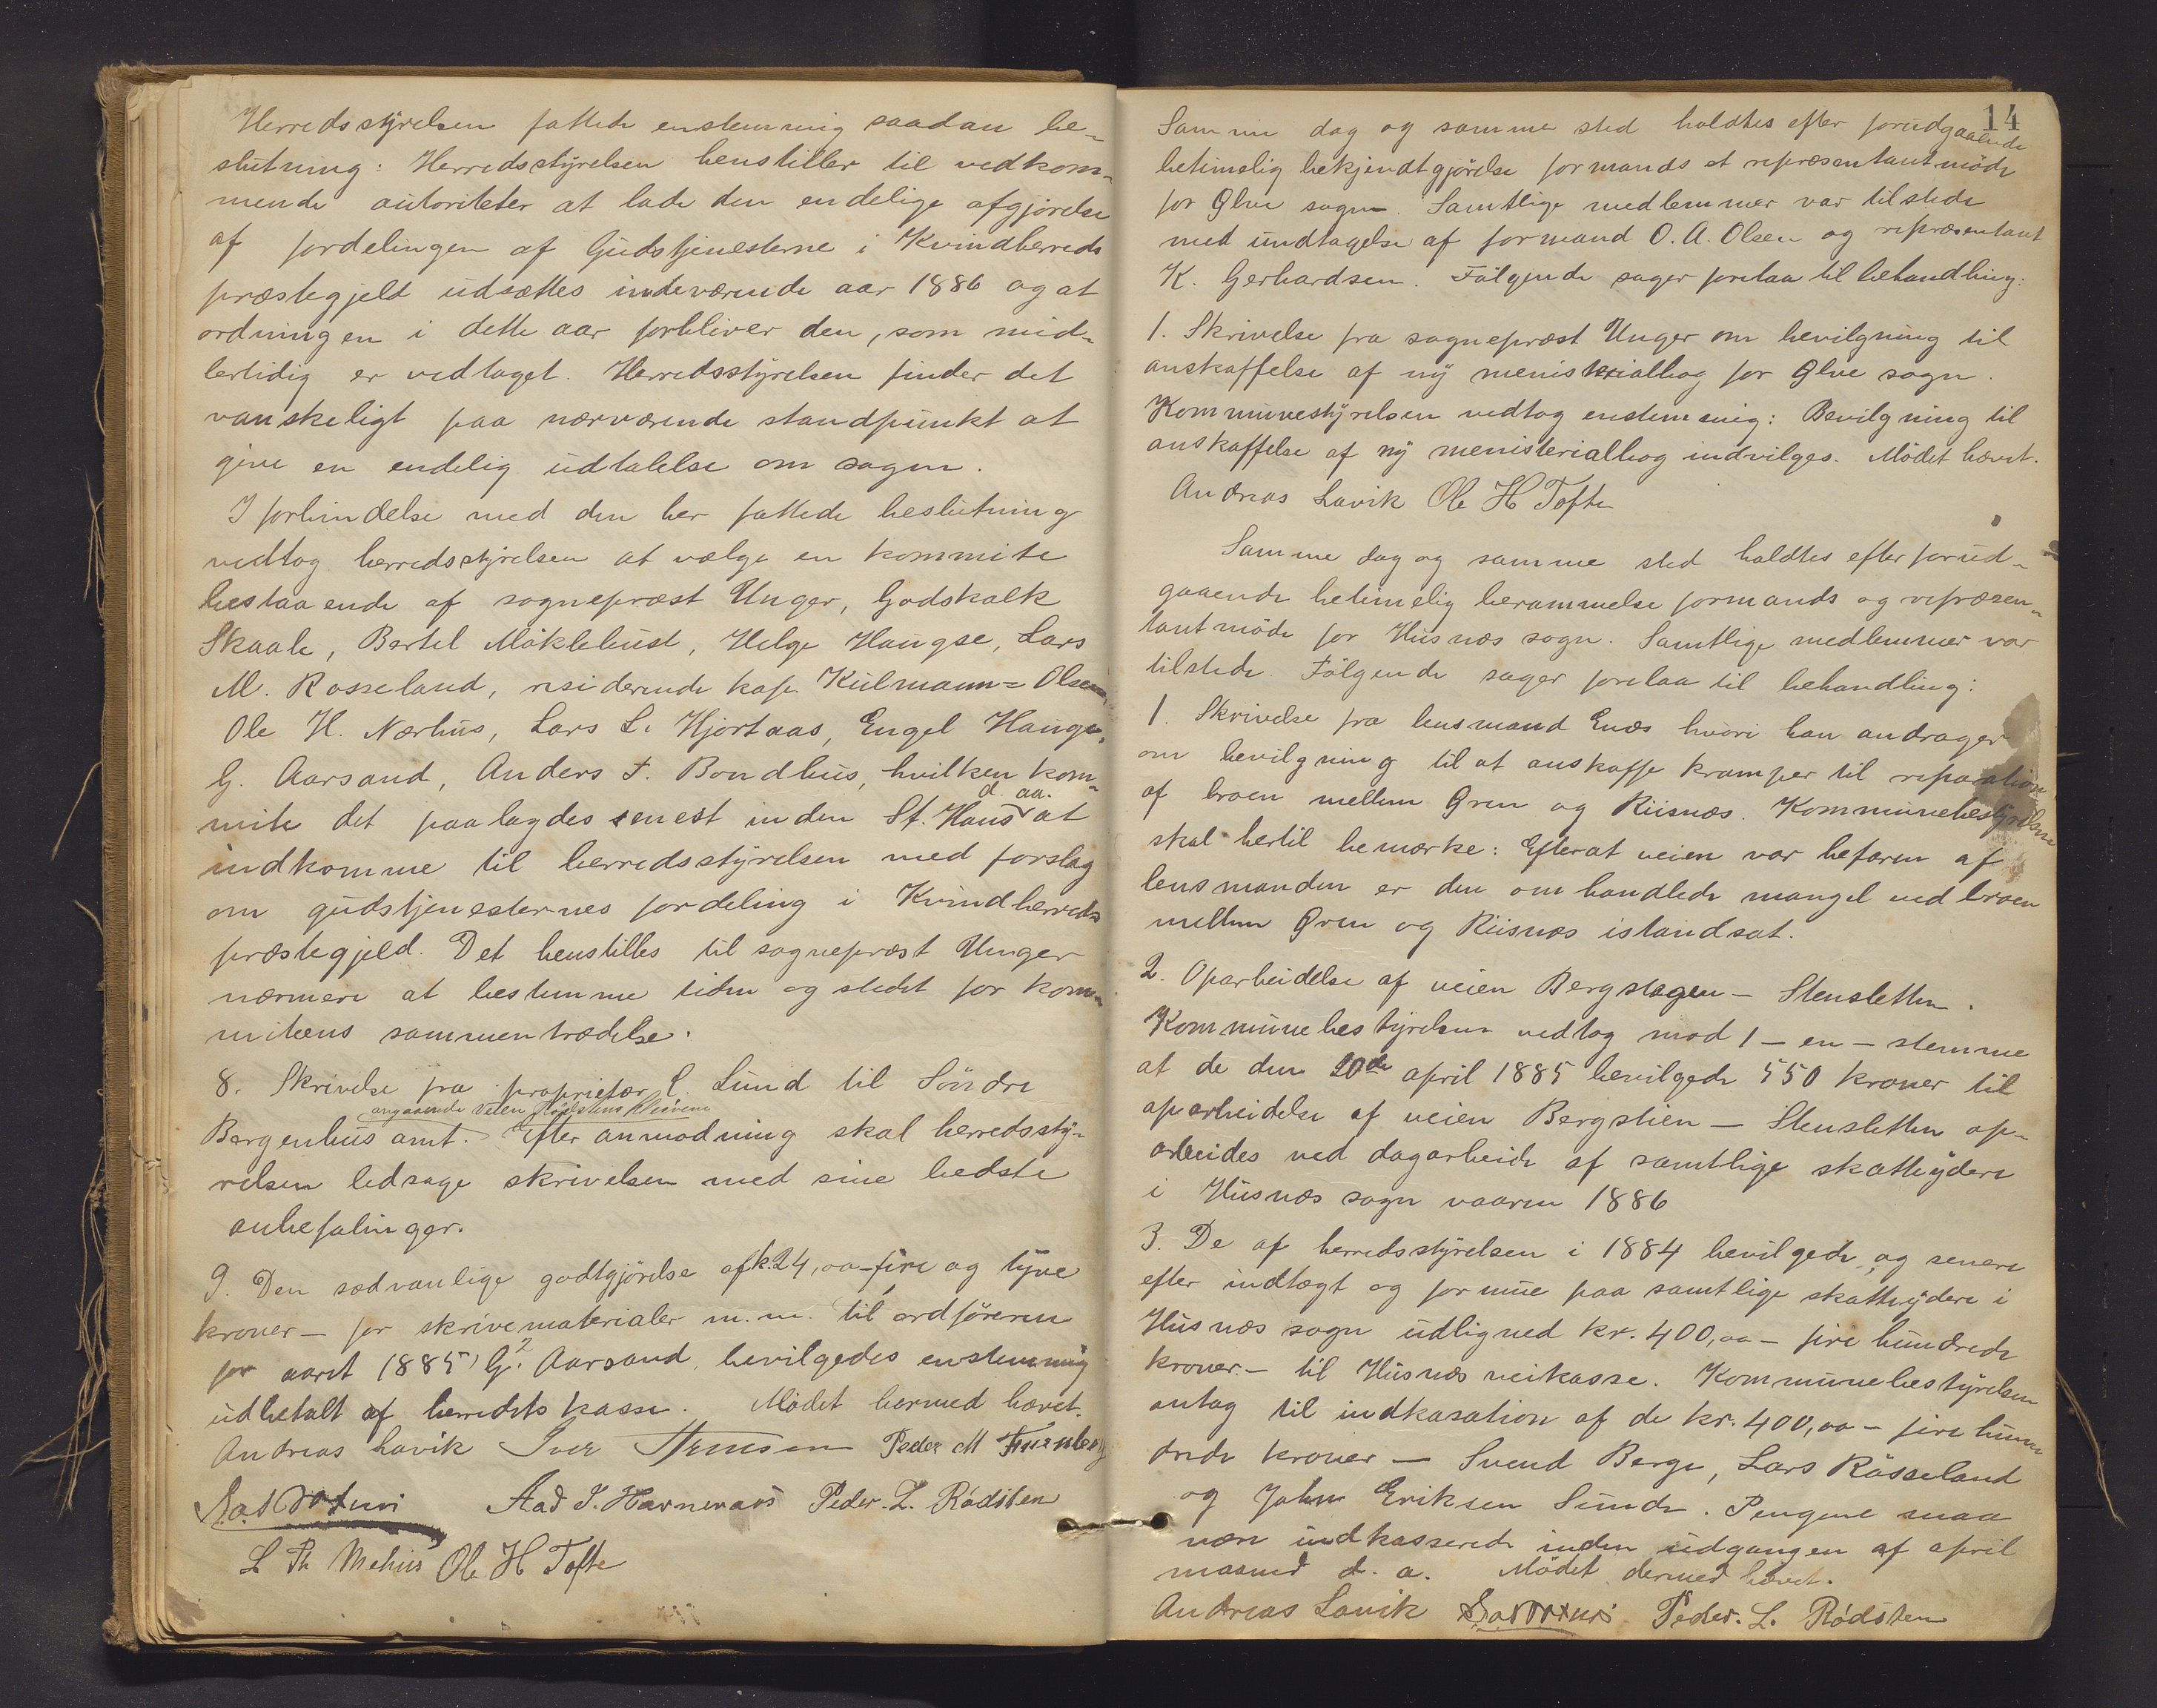 Herredsstyrelsen fattede enstemmig saadan be-
slutning: Herredsstyrelsen henstiller til vedkom-
mende autoriteter at lade den endelige afgjörelse
af fordelingen af Gudstjenesterne i Kvindherreds
præstegjeld udsættes indeværende aar 1886 og at
ordningen i dette aar forbliver den, som mid-
lertidig er vedtaget. Herredsstyrelsen finder det
vanskeligt paa nærværende standpunkt at
give en endelig udtalelse om sagen.
I forbindelse med den her fattede beslutning
vedtog herredsstyrelsen at vælge en kommite
bestaaende af sognepræst Unger, Godskalk
Skaale, Bertel Möklebust, Helge Haugse, Lars
M. Rosseland, residerende kap. Kulmann=Olsen,
Ole H. Nærhus, Lars L. Hjortaas, Engel Hauge,
G. Aarsand, Anders F. Bondhus, hvilken kom-
mite det paalagdes senest inden St. Hans d. aa. at
indkomme til herredsstyrelsen med forslag
om gudstjenesternes fordeling i Kvindherreds
præstegjeld. Det henstilles til sognepræst Unger
nærmere at bestemme tiden og stedet for kom-
miteens sammentrædelse.
8. Skrivelse fra proprietær C. Lund til Söndre
Bergenhus amt. angaaende veien Efter anmodning skal herredssty-
relsen ledsage skrivelsen med sine bedste
anbefalinger.
9. Den sædvanlige godtgjörelse af k. 24,oo - fire og tyve
kroner - for skrivematerialer m.m. til ordföreren
for aaret 1885, G. Aarsand, bevilgedes enstemmig
udbetalt af herredets kasse. Mödet hermed hævet.
Andreas Lavik Iver Peder M
Aad J. Peder. L. Rödsten
L Th Mehus Ole H Tofte
14
Samme dag og samme sted holdtes efter forudgaaende
betimelig bekjendtgjörelse formands et repræsentantmöde
for Ølve sogn. Samtlige medlemmer var tilstede
med undtagelse af formand O. A. Olsen og repræsentant
K. Gerhardsen. Fölgende sager forelaa til behandling:
1. Skrivelse fra sognepræst Unger om bevilgning til
anskaffelse af ny menisterialbog for Ølve sogn.
Kommunestyrelsen vedtog enstemmig: Bevilgning til
anskaffelse af ny menisterialbog indvilges. Mödet hævet.
Andreas Lavik Ole H Tofte
Samme dag og samme sted holdtes efter forud-
gaaende betimelig berammelse formands og repræsen-
tantmöde for Husnæs sogn. Samtlige medlemmer var
tilstede. Fölgende sager forelaa til behandling:
1. Skrivelse fra lensmand Enæs hvori han andrager
om bevilgning til at anskaffe kramper til reparation
af broen mellem Øren og Riisnæs. Kommunebestyrelsen
skal hertil bemærke: Efterat veien var befaren af
lensmanden er den omhandlede mangel ved broen
mellem Øren og Riisnæs istandsat.
2. Oparbeidelse af veien Bergstøgen - Stensletten.
Kommunebestyrelsen vedtog mod 1 - en - stemme
at de den 20de april 1885 bevilgede 550 kroner til
oparbeidelse af veien Bergstien - Stensletten op-
arbeides ved dagarbeide af samtlige skatteydere
i Husnæs sogn vaaren 1886
3. De af herredsstyrelsen i 1884 bevilgede, og senere
efter indtægt og formue paa samtlige skatteydere i
Husnæs sogn udligned kr. 400,oo - fire hundrede
kroner. - til Husnæs veikasse. Kommunebestyrelsen
antog til indkasation af de kr. 400,oo - fire hun-
drede kroner - Svend Berge, Lars Rösseland
og John Eriksen Sunde. Pengene maa
være indkasserede inden udgangen af april
maaned d. a. Mödet dermed hævet.
Andreas Lavik Peder. L. Rödsten